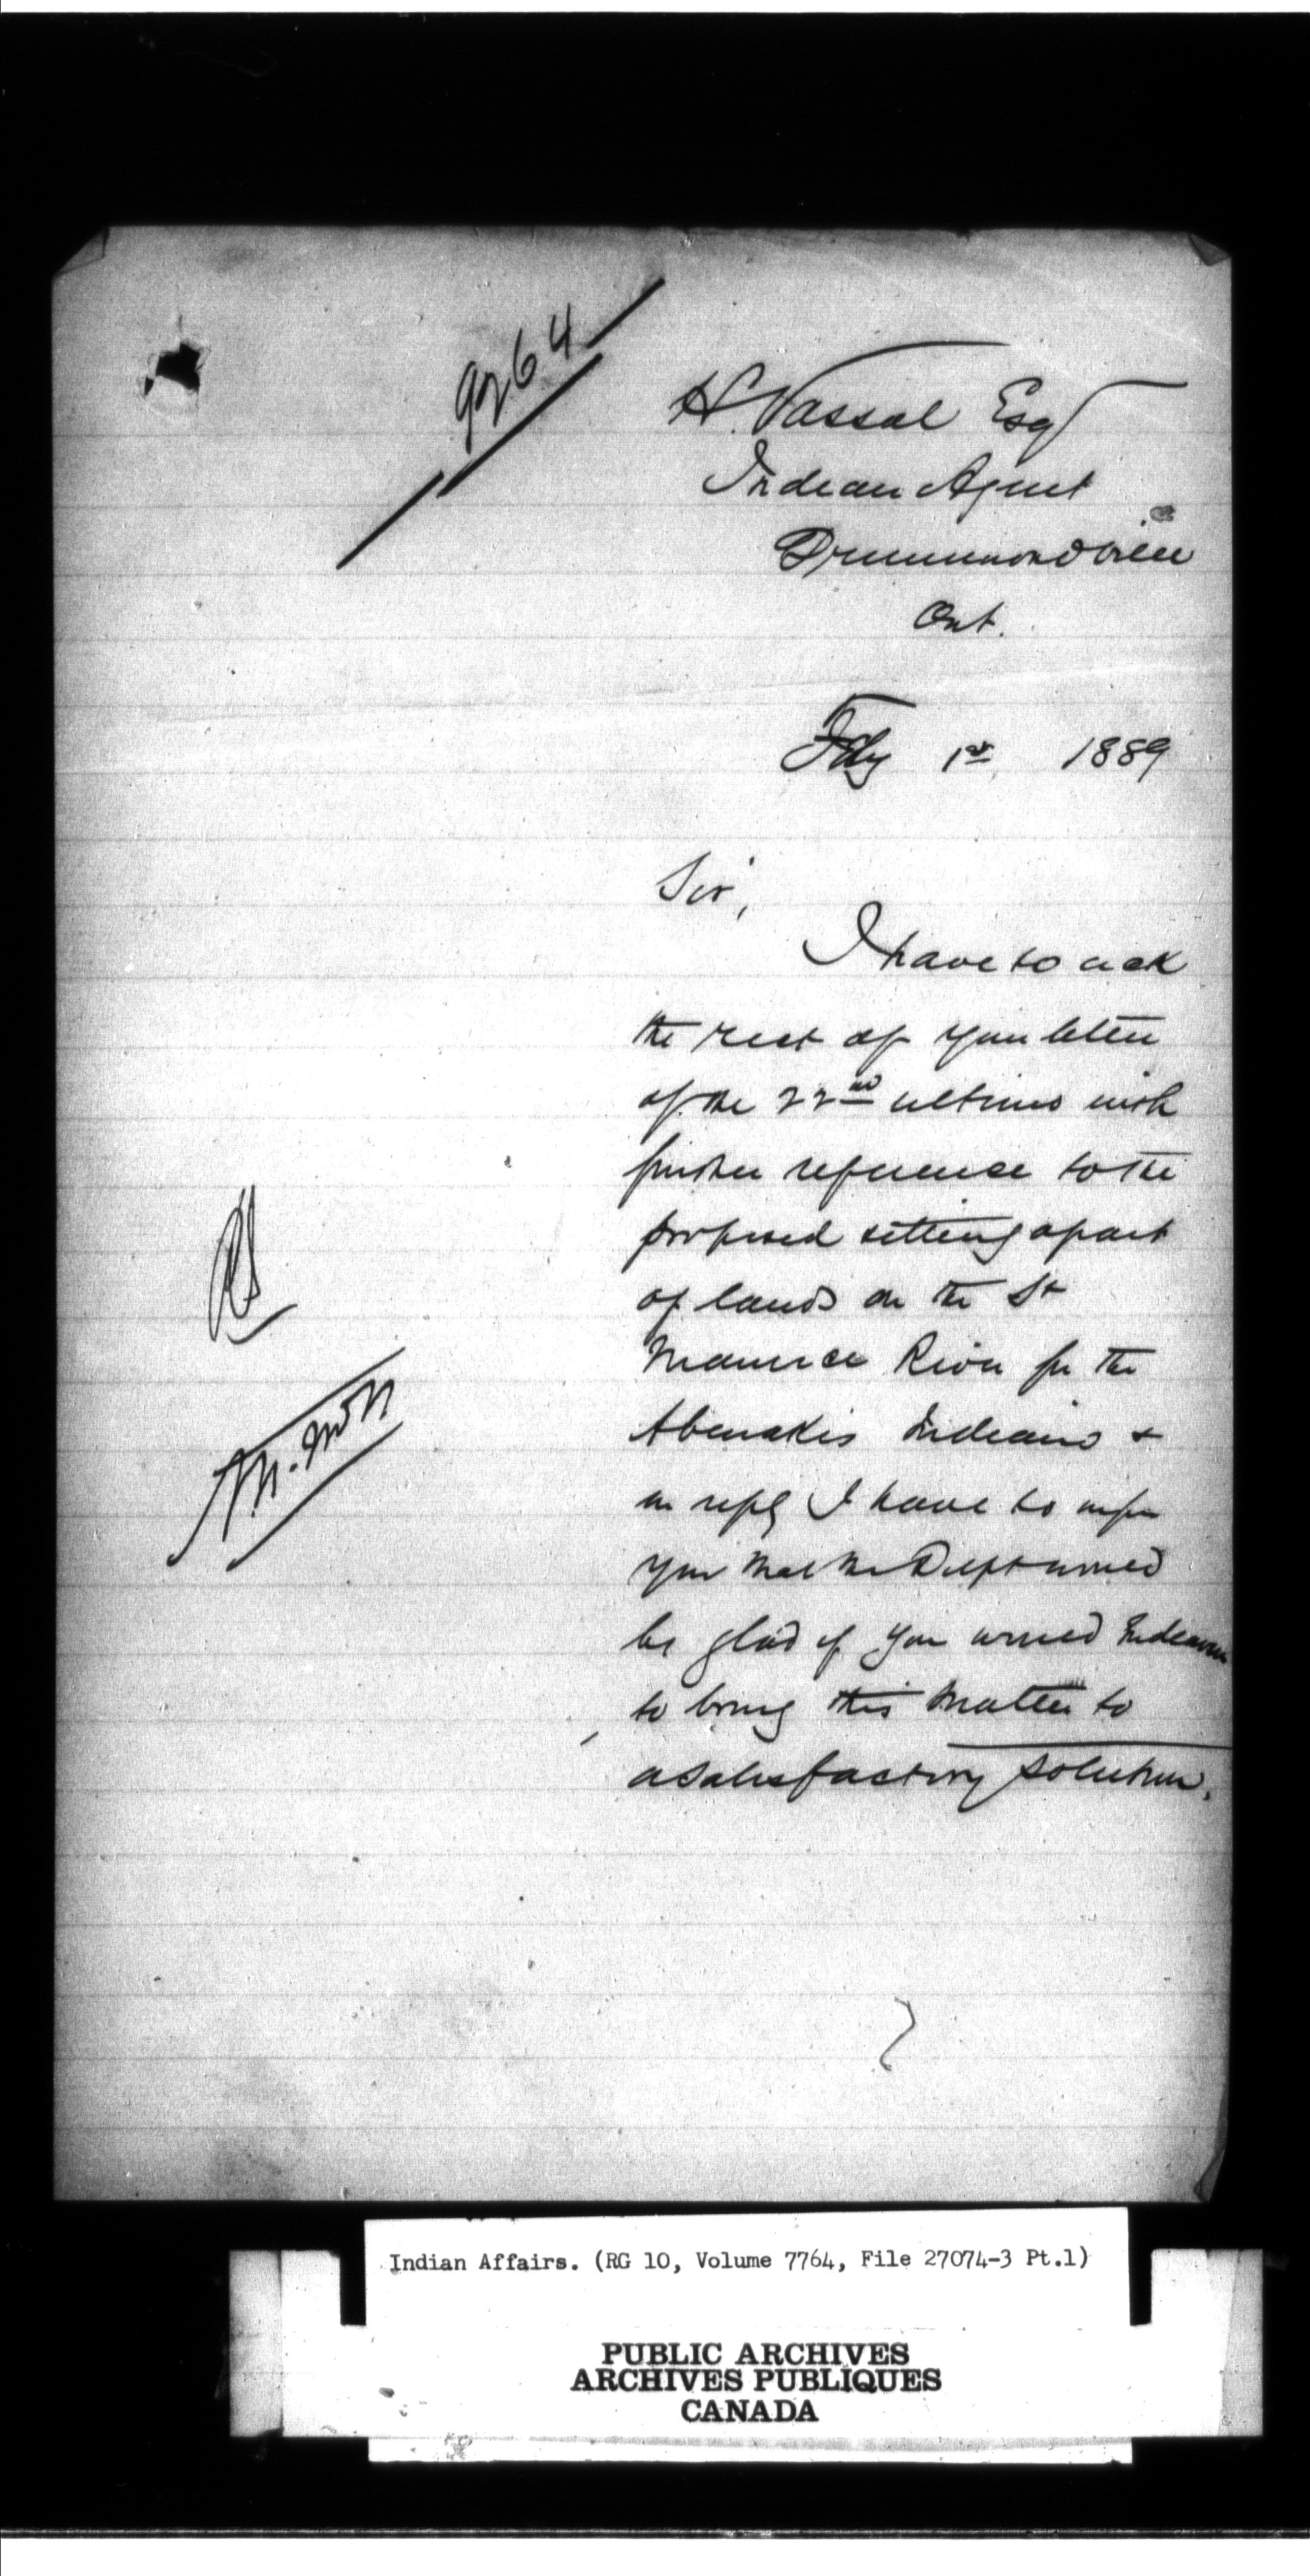 9264
H. Vassal Esq
Indian Agent
Drummondville
Ont.
Fby 1st, 1889
Sir,
I have to ack
the rect of your letter
of the 22nd ultimo with
further reference to the
proposed setting apart
of lands on the St
Maurice River for the
Abenakis Indians &
in reply I have to infm
you that the Dept would
be glad if you would Endeavour
to bring this matter to
a satisfactory solution.
Indian Affairs. (RG 10, Volume 7764, File 27074-3 Pt.1)
PUBLIC ARCHIVES
ARCHIVES PUBLIQUES
CANADA